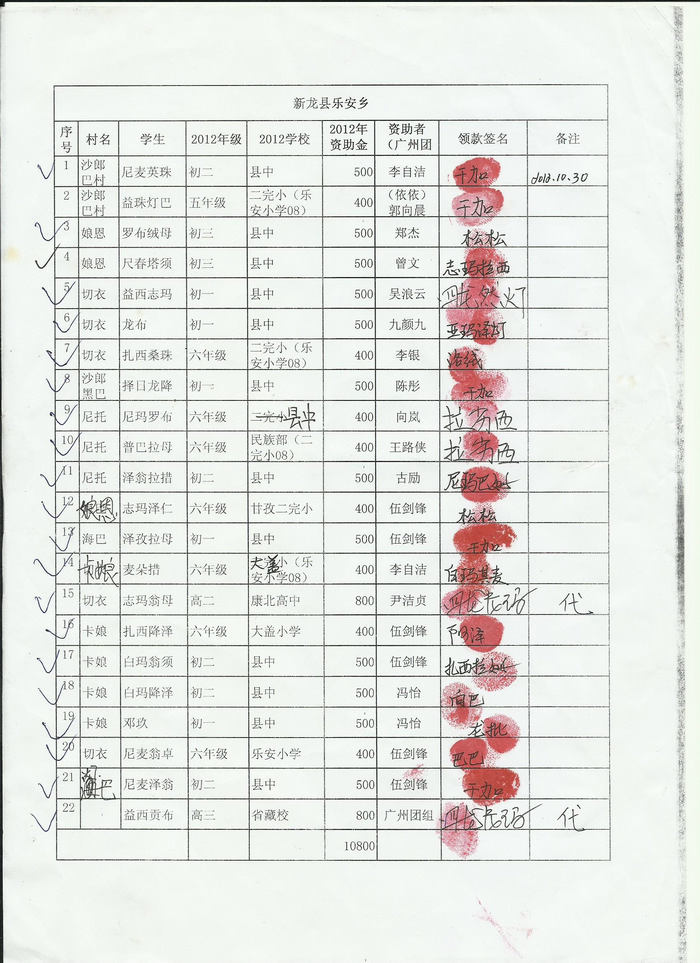 新龙县乐安乡
序号 村名 学生 2012年级 2012学校 2012年资助金 资助者（广州团 领款签名 备注
1 沙郎巴村 尼麦英珠 初二 县中 500 李自洁 干加 2012.10.30
2 沙郎巴村 益珠灯巴 五年级 二完小（乐安小学08） 400 （依依）郭向晨 干加
3 娘恩 罗布绒母 初三 县中 500 郑杰 松松
4 娘恩 尺春塔须 初三 县中 500 曾文 志玛拉西
5 切衣 益西志玛 初一 县中 500 吴浪云
6 切衣 龙布 初一 县中 500 九颜九 亚玛泽灯
7 切衣 扎西桑珠 六年级 二完小（乐安小学08） 400 李银 洛绒
8 沙郎黑巴 择日龙降 初一 县中 500 陈彤 干加
9 尼托 尼玛罗布 六年级 二完小 县中 400 向岚
10 尼托 普巴拉母 六年级 民族部（二完小08） 400 王路侠
11 尼托 泽翁拉措 初二 县中 500 古励 尼玛巴
12 娘恩 志玛泽仁 六年级 甘孜二完小 400 伍剑锋 松松
13 海巴 泽孜拉母 初一 县中 500 伍剑锋 干加
14 卡娘 麦朵措 六年级 大盖小（乐安小学08） 400 李自洁 白玛其麦
15 切衣 志玛翁母 高二 康北高中 800 尹洁贞 代
16 卡娘 扎西降泽 六年级 大盖小学 400 伍剑锋 阿泽
17 卡娘 白玛翁须 初二 县中 500 伍剑锋 扎西拉
18 卡娘 白玛降泽 初二 县中 500 冯怡 向巴
19 卡娘 邓玖 初一 县中 500 冯怡 龙批
20 切衣 尼麦翁卓 六年级 乐安小学 400 伍剑锋 巴巴
21 海巴 尼麦泽翁 初二 县中 500 伍剑锋 干加
22 益西贡布 高三 省藏校 800 广州团组 代
10800